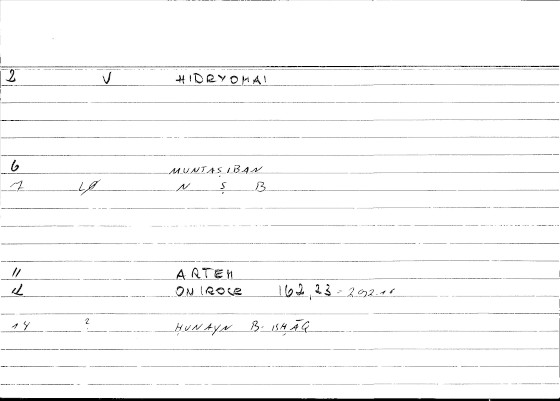 2 V HIDRYOMAI
6 MUNTAṢIBAN
7 N Ṣ B
11 ARTEM
ONIROCR 162,23
14 ? ḤUNAYN B. ISḤĀQ